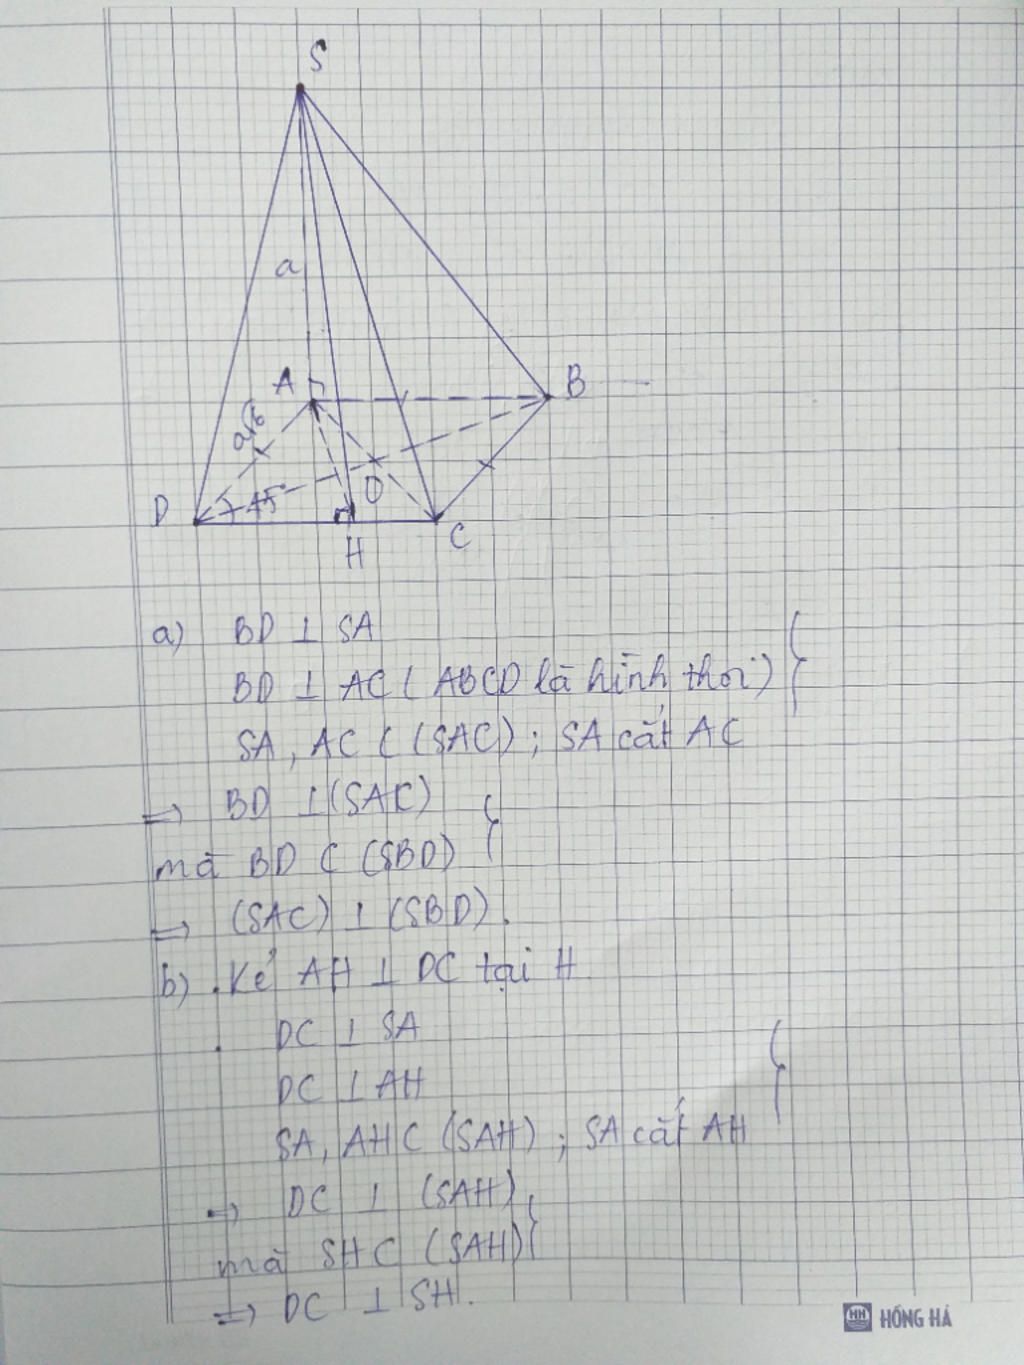 S
a
A
B
a√6
D
45
O
H
C
a) BD ⊥ SA
BD ⊥ AC ( ABCD là hình thoi )
SA , AC ⊂ (SAC) ; SA cắt AC
=> BD ⊥ (SAC)
mà BD ⊂ (SBD)
=> (SAC) ⊥ (SBD).
b) . Kẻ AH ⊥ DC tại H
. DC ⊥ SA
DC ⊥ AH
SA, AH ⊂ (SAH) ; SA cắt AH
=> DC ⊥ (SAH)
mà SH ⊂ (SAH)
=> DC ⊥ SH.
HH HỒNG HÀ